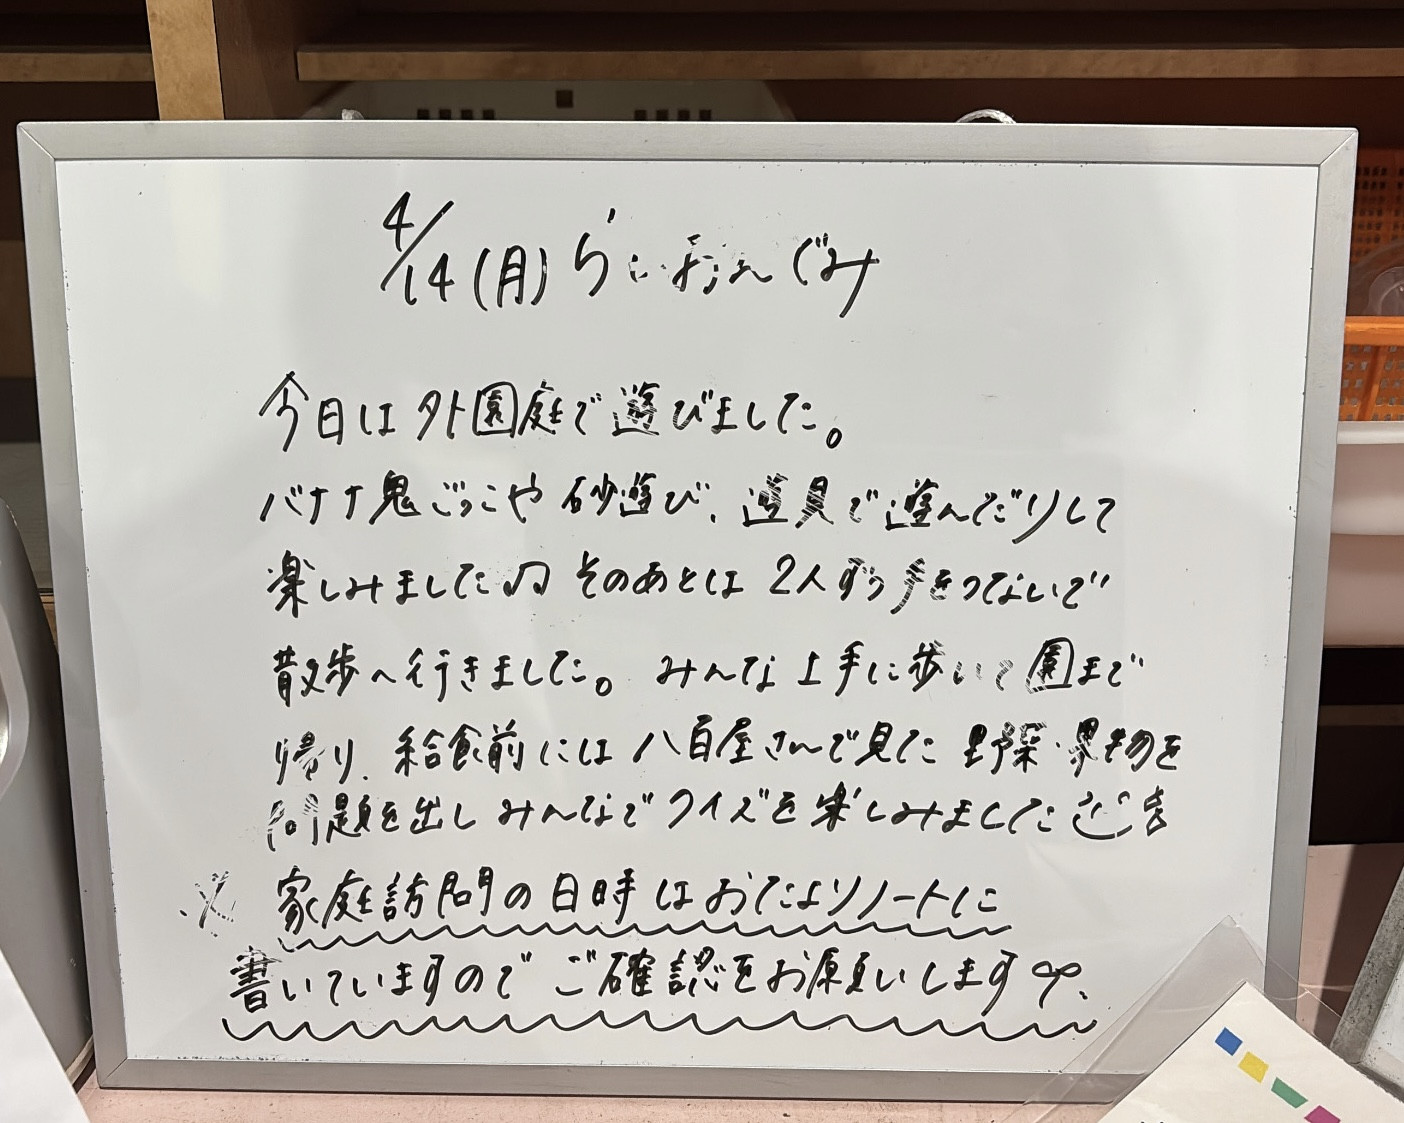 4/14(月) らいおんぐみ
今日は外園庭で遊びました。
バナナ鬼ごっこや砂遊び、遊具で遊んだりして
楽しみました♫ そのあとは2人ずつ手をつないで
散歩へ行きました。みんな上手に歩いて園まで
帰り、給食前には八百屋さんで見た野菜・果物を
問題を出しみんなでクイズを楽しみました
※ 家庭訪問の日時はおたよりノートに
書いていますのでご確認をお願いします